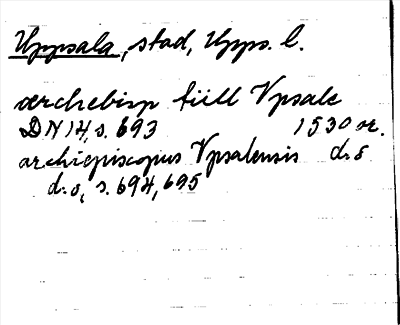 Uppsala, stad, Upps. l.
ærchebisp tiill Vpsale
DN 14, s. 693 1530 or.
archiepiscopus Vpsalensis d.å
d.o, s. 694, 695